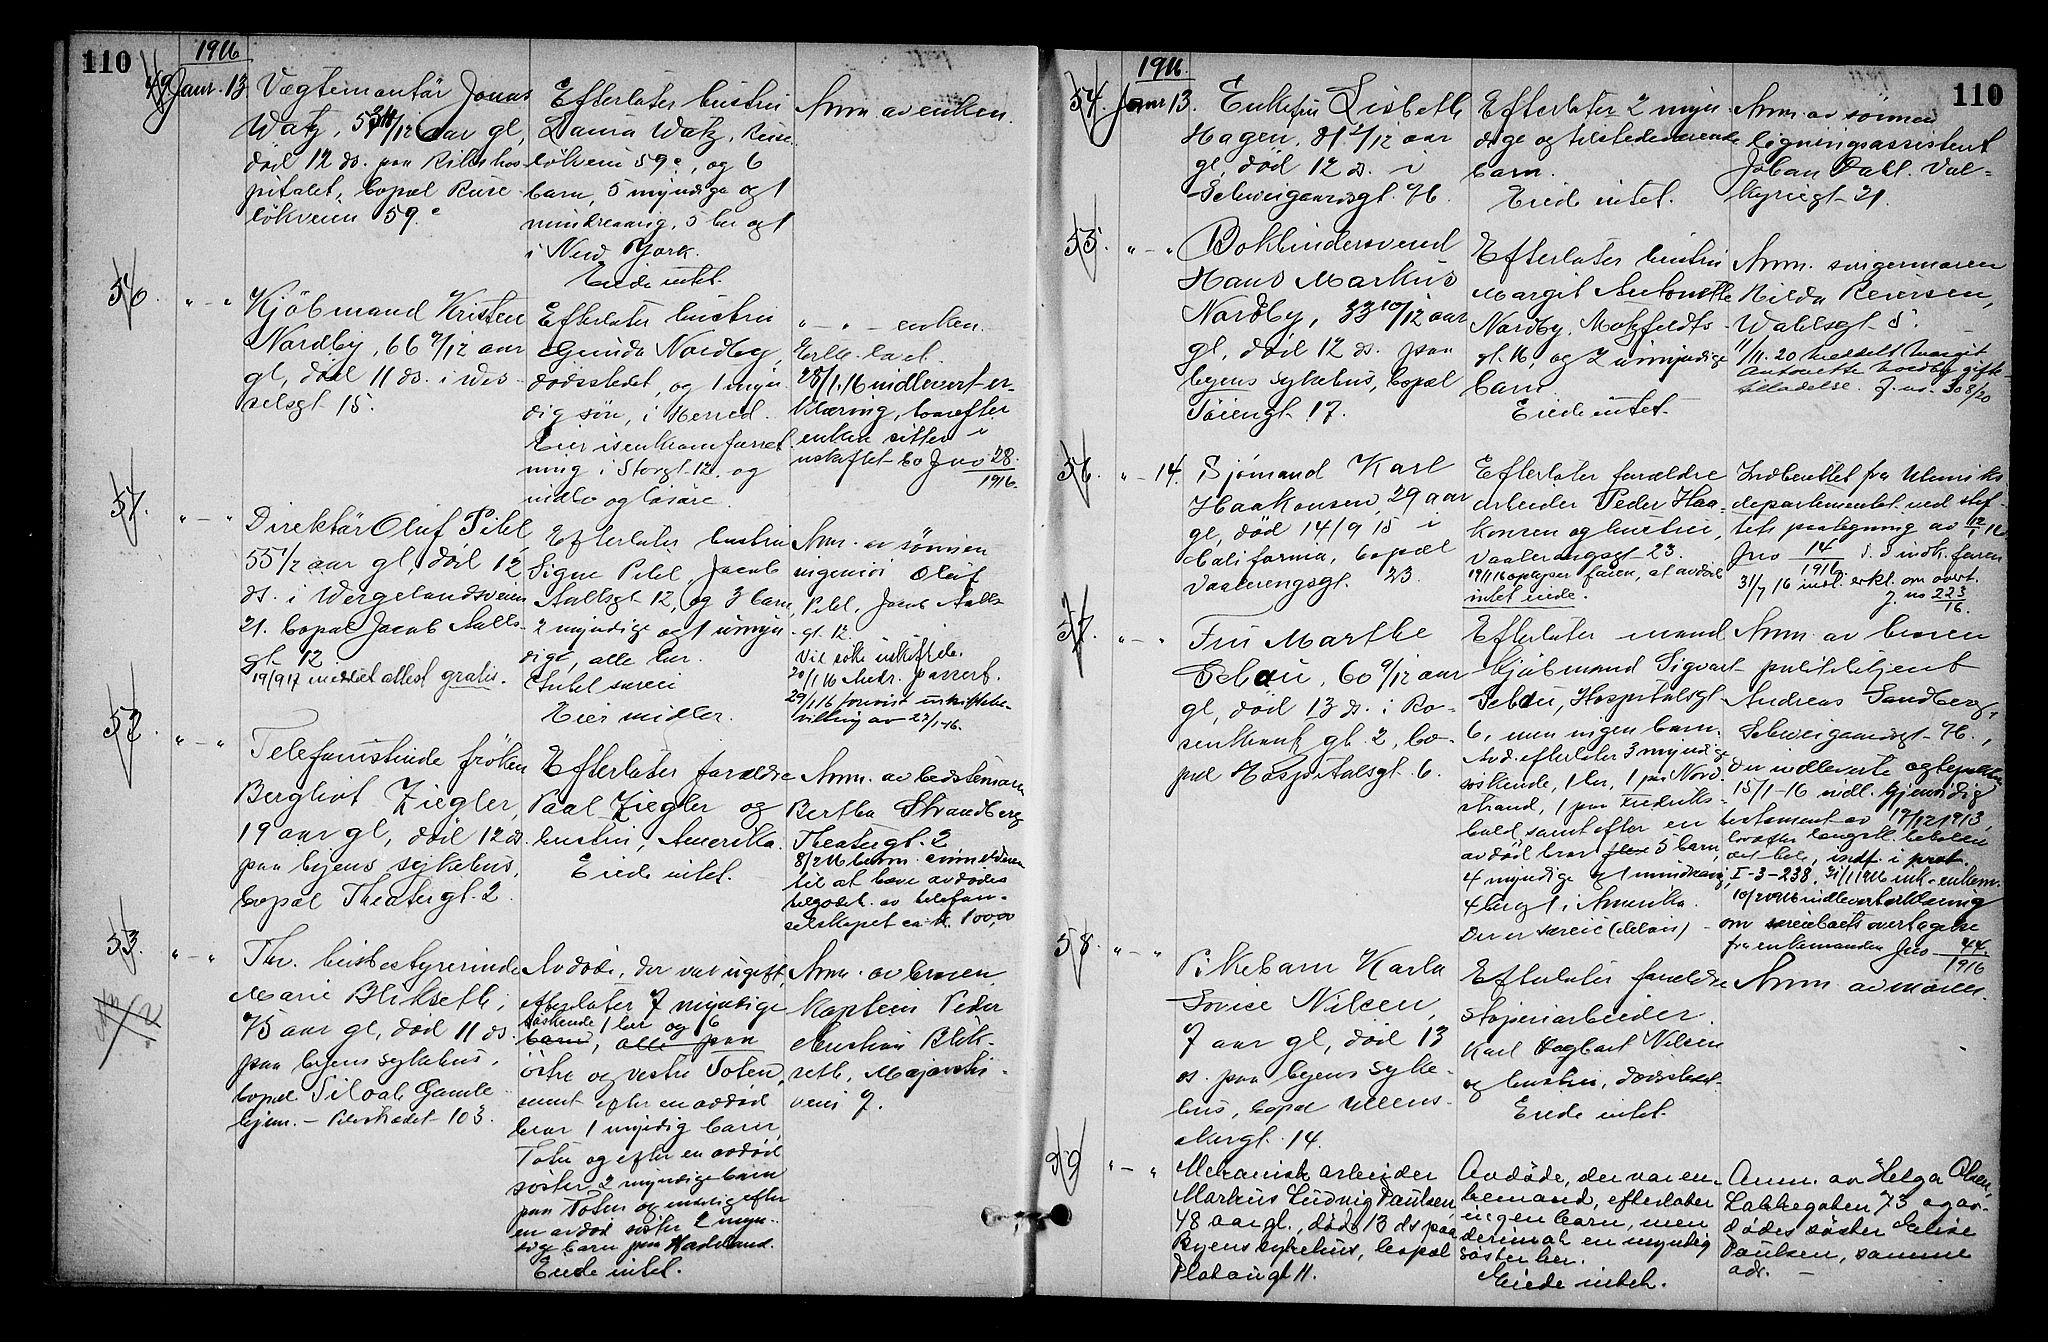 110
1916
49 Janr. 13.
Vægtemontör Jonas
Watz, 53 11/12 aar gl,
död 12 ds. paa Rikshos-
pitalet, bopæl Ruse-
lökveien 59 c
Efterlater hustru
Laura Watz, Ruse-
lökveien 59 c, og 6
barn, 5 myndige og 1
mindreaarig, 5 her og 1
i New York.
Eiede intet.
Anm. av enken.
50. " - "
Kjöbmand Kristen
Nordby, 66 9/12 aar
gl, död 11 ds. i Wes-
selsgt. 15.
Efterlater hustru
Gunda Nordby,
dödsstedet, og 1 myn-
dig sön, i Herred.
Eier isenkramforret-
ning i Storgt. 12, og
indbo og lösöre.
" - " - enken.
28/1.16 indlevert er-
klæring, hvorefter
enken sitter i
uskiftet bo Jno 28
1916.
51. " - "
Direktör Oluf Pihl,
55 1/2 aar gl, död 12
ds. i Wergelandsveien
21. bopæl Jacob Aalls-
gt. 12
19/9 17 meddelt attest gratis.
Efterlater hustru
Signe Pihl, Jacob
Aallsgt 12, og 3 barn,
2 myndige og 1 umyn-
dige, alle her.
Intet særeie
Eier midler.
Anm. av sönnen
ingeniör Oluf
Pihl, Jacob Aalls-
gt. 12.
Vil söke uskiftebev.
29/1 16 forevist uskiftebe-
villing av 22/1-16.
52. " - "
Telefonistinde fröken
Bergliot Ziegler,
19 aar gl, död 12 ds.
paa byens sykehus,
bopæl Theatergt. 2.
Efterlater forældre
Paal Ziegler og
hustru, Amerika.
Eiede intet.
Anm. av bedstemoren
Bertha Strandberg
Theatergt. 2
8/2 16 bem. anmelderen
til at hæve avdödes
tilgodeh. av telefon-
selskapet ca. kr. 100,00
53. " - "
Fhv. husbestyrerinde
Marie Blikseth,
75 aar gl, död 11 ds.
paa byens sykehus,
bopæl Siloah Gamle-
hjem. - Pilestrædet 103.
Avdöde, der var ugift,
efterlater 7 myndige
söskende 1 her og 6
barn, alle paa
östre og vestre Toten,
samt efter en avdöd
bror 1 myndig barn,
Toten og efter en avdöd
söster 2 myndige barn
paa Toten og endelig efter
en avdöd söster 2 myn-
dige barn paa Hadeland.
Eiede intet.
Anm. av broren,
Kaptein Peder
Kristian Blik-
seth, Majorstu-
veien 7.
110
1916.
54. Janr 13.
Enkefru Lisbeth
Hagen, 81 2/12 aar
gl, död 12 ds. i
Schweigaardsgt. 76.
Efterlater 2 myn-
dige og tilstedeværende
barn.
Eiede intet.
Anm. av sönnen
ligningsassistent
Johan Dahl. Val-
kyriegt. 21.
55. " - "
Bokbindersvend
Hans Markus
Nordby, 33 10/12 aar
gl, död 12 ds. paa
byens sykehus, bopæl
Töiengt. 17.
Efterlater hustru
Margit Antonette
Nordby, Motzfeldts-
gt. 16, og 2 umyndige
barn.
Eiede intet.
Anm. svigermoren
Hilda Reiersen,
Wahlsgt. 5.
11/11. 20 meddelt Margit
Antonette Nordby gifte-
tilladelse. J. no. 308/20
56. " - 14.
Sjömand Karl
Haakonsen, 29 aar
gl, död 14/9 15 i
California, bopæl
Vaalerengsgt. 23.
Efterlater forældre
arbeider Peder Haa-
konsen og hustru,
Vaalerengsgt 23.
19/1 16 oplyser faren, at avdöde
intet eiede.
Indberettet fra Utenriks-
departementet ved skif-
tets paategning av 12/1 16
Jno 14 / 1916 s. d. indk. faren
31/7 16 indl. erkl. om overt.
J. no 223
16.
57. " - "
Fru Marthe
Schou, 60 9/12 aar
gl, död 13 ds. i Ro-
senkrantzgt. 2, bo-
pæl Hospitalsgt. 6.
Efterlater mand
kjöbmand Sigvart
Schou, Hospitalsgt.
6, men ingen barn.
Avd. efterlater 3 myndige
söskende, 1 her, 1 paa Nord-
strand, 1 paa Fredriks-
hald samt efter en
avdöd bror 5 barn,
4 myndige og 1 mindreaarig,
4 her og 1 i Amerika.
Der er særeie (delvis) -
Anm. av broren
politibetjent
Andreas Sandberg,
Schweigaardsgt. 76.,
15/1-16 indl. gjensidig
testament av 19/12 1913,
hvorefter længstl. beholder
det hele, indf. i prot.
I-3-238. 31/1 1916 ink. enkem.
10/2 1916 indlevert erklæring
om særeieboets overtagelse
fra enkemanden Jno 44
1916
58. " - "
Pikebarn Karla
Lovise Nilsen,
7 aar gl, död 13
ds. paa byens syke-
hus, bopæl Ullens-
akergt. 14.
Efterlater forældre
stöperiarbeider
Karl Dagbart Nilsen
og hustru, dödsstedet.
Eiede intet.
Anm. av moren.
59 " - "
Mekanisk arbeider
Markus Ludvig Paulsen,
48 aar gl., död 13 ds paa
Byens sykehus, bopæl
Platousgt 11.
Avdöde, der var en-
kemand, efterlater
ingen barn, men
derimot en myndig
söster her.
Eiede intet.
Anm. av Helga Olsen,
Lakkegaten 73 og av-
dödes söster Elise
Paulsen, samme
adr. -